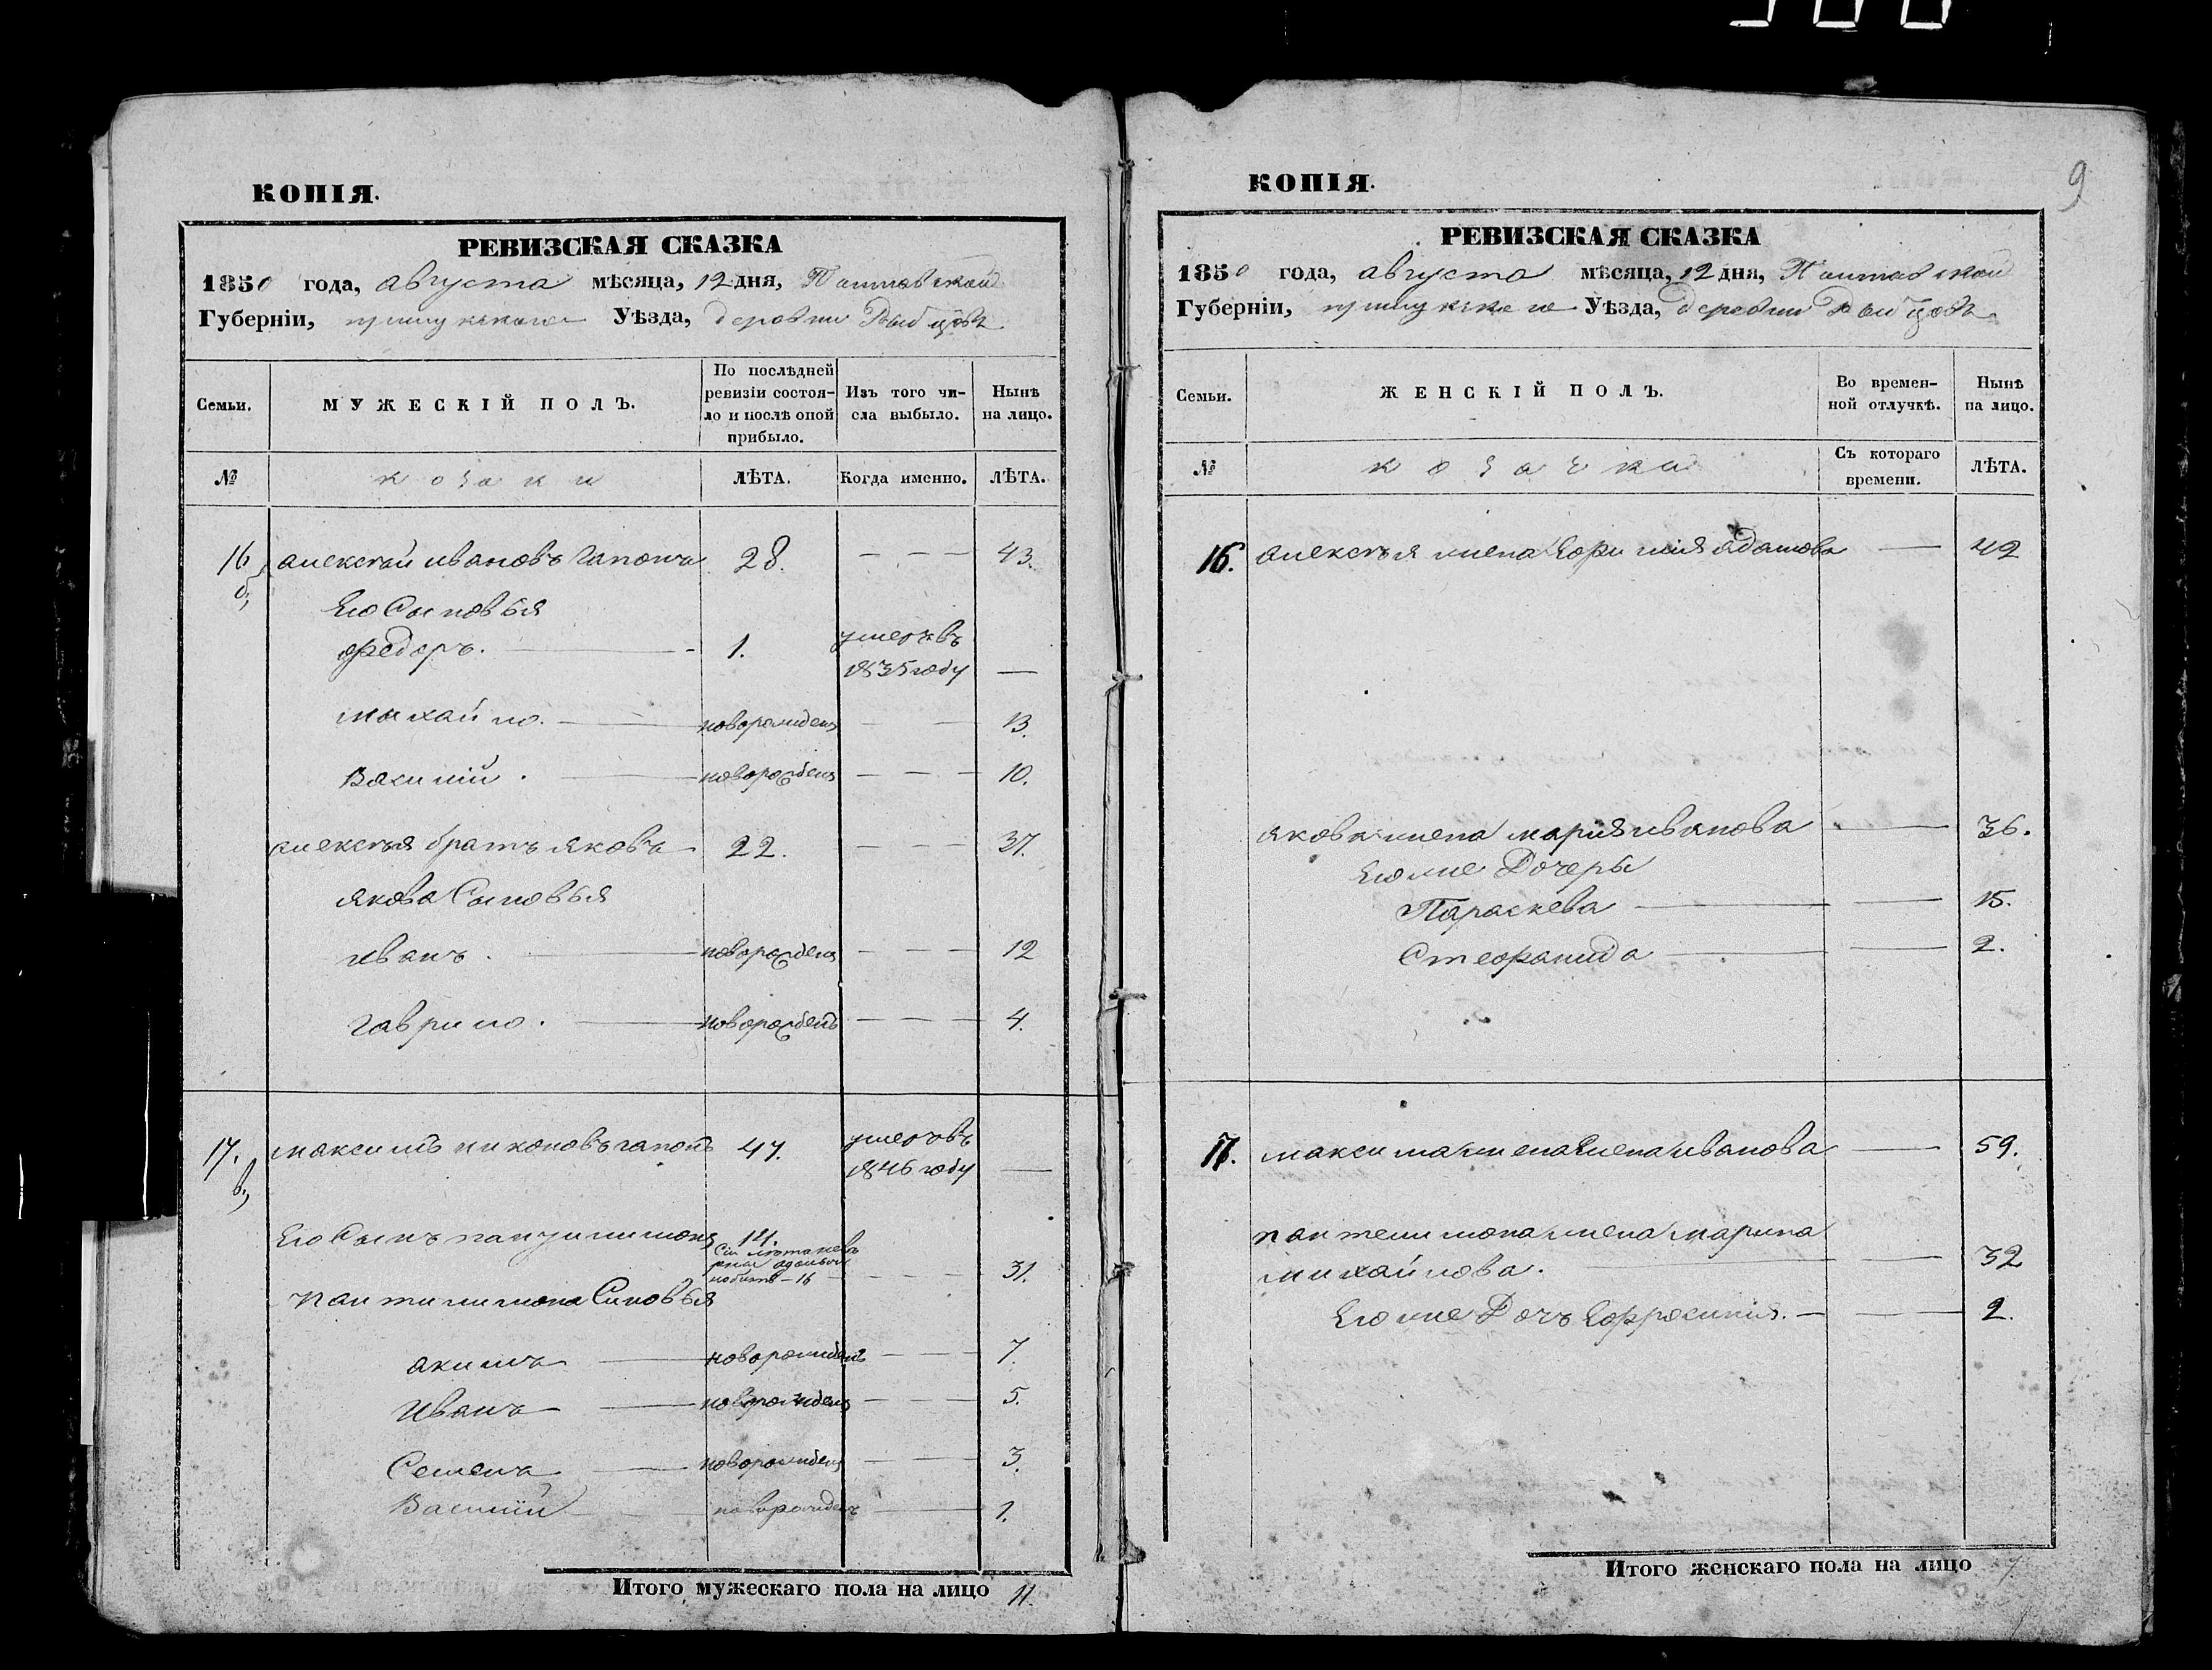 КОПІЯ.
РЕВИЗСКАЯ СКАЗКА
1850 года, августа мѣсяца, 12 дня, Полтавской
Губерніи, прилукского Уѣзда, деревни Рыбцовъ
Семьи.
МУЖЕСКІЙ ПОЛЪ.
По послѣдней ревизіи состояло и послѣ оной прибыло.
Изъ того числа выбыло.
Нынѣ на лицо.
№
козаки
ЛѢТА.
Когда именно.
ЛѢТА.
16 алексѣй ивановъ гапонъ 28. — — — 43.
Его Сыновья
федоръ. — 1. умеръ въ
1835 году —
михайло. — новорожденъ — — 13.
Василій. — новорожденъ — — — 10.
алексѣя братъ яковъ — 22. — — — 37.
якова Сыновья
иванъ. — новорожденъ — — — 12
гаврило. — новорожденъ — — — 4.
17. максимъ никоновъ гапонъ 47. умеръ въ
1846 году —
Его Сынъ пантилимонъ 14.
16 — — — — 31.
пантилимона Сыновья
акимъ — новорожденъ — — 7.
Иванъ — новорожденъ — — — 5.
Семенъ — новорожденъ — — 3.
Василій — новорожденъ — — 1.
Итого мужескаго пола на лицо 11.
9
КОПІЯ.
РЕВИЗСКАЯ СКАЗКА
1850 года, августа мѣсяца, 12 дня, Полтавской
Губерніи, прилукского Уѣзда, деревни Рыбцовъ
Семьи.
ЖЕНСКІЙ ПОЛЪ.
Во временной отлучкѣ.
Нынѣ на лицо.
№
козачки
Съ котораго времени.
ЛѢТА.
16. алексѣя жена адамова — 42
якова жена марія иванова — 36.
Его же Дочеры
Параскева — — 15.
Стефанида — — 2.
17. максима жена Елена иванова — 59.
пантелимона жена марина
михайлова. — — 32
Его же Дочъ Ефросинія. — — 2.
Итого женскаго пола на лицо 7.